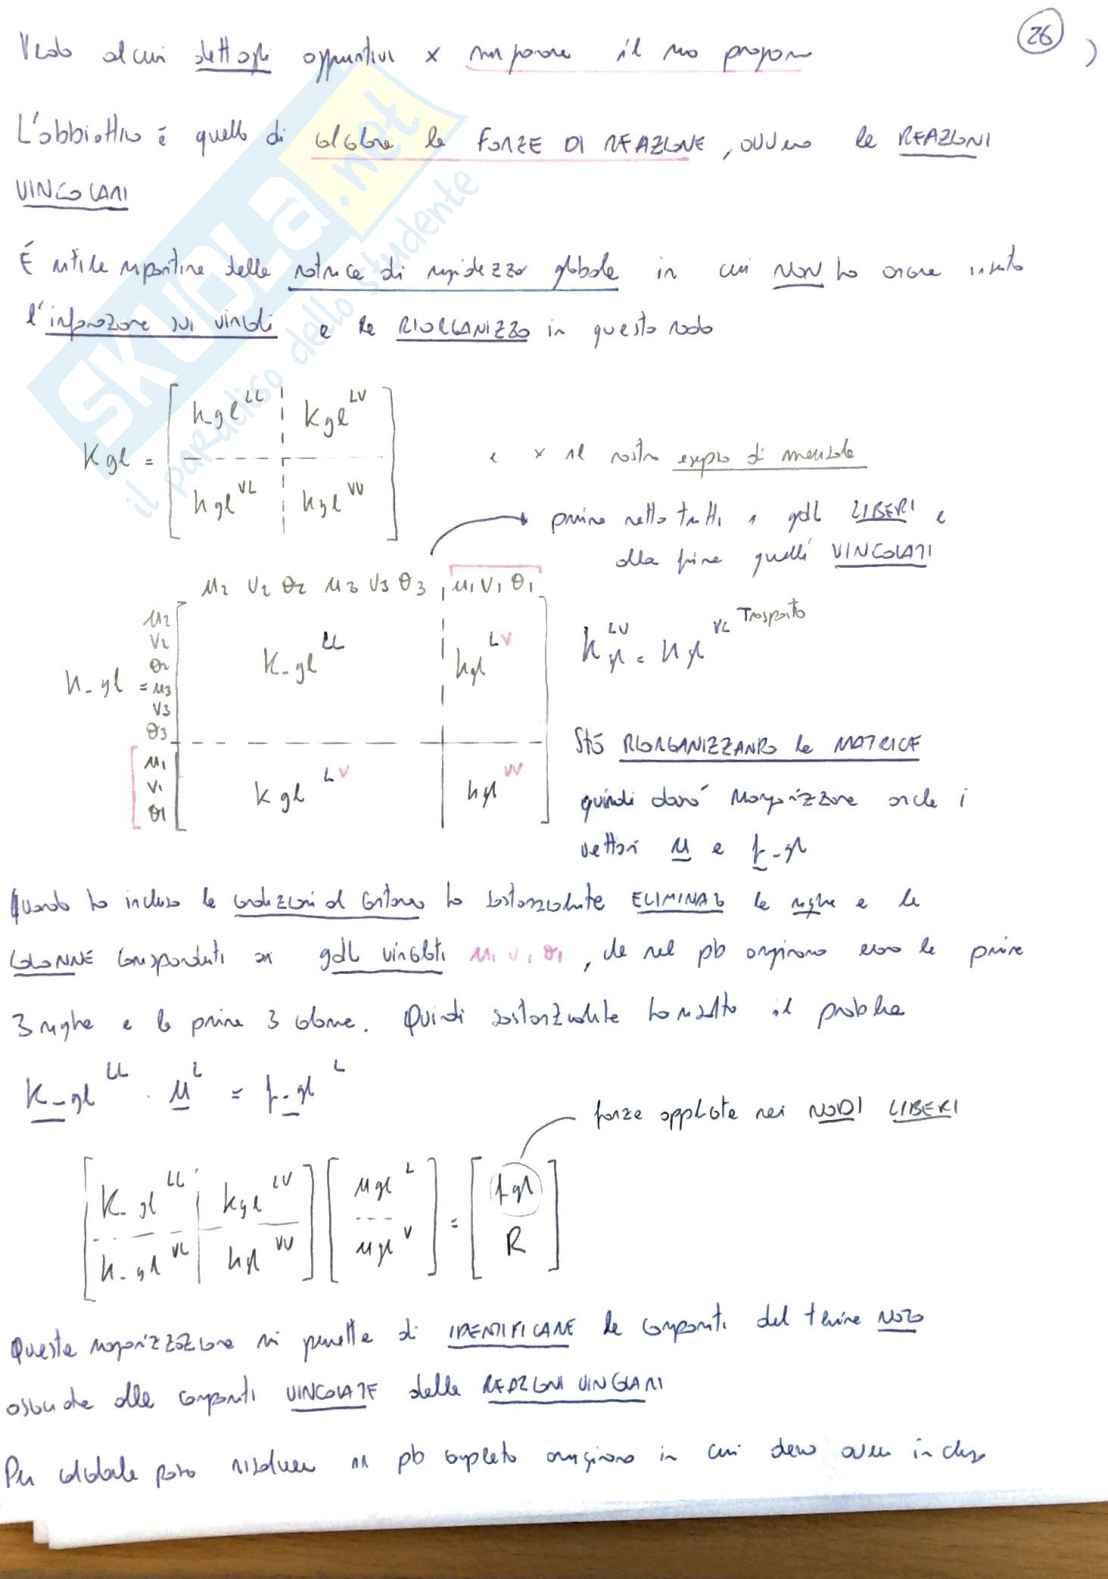 26
Vedo alcuni dettagli aggiuntivi x
L'obbiettivo è quello di calcolare le FORZE DI REAZIONE, ovvero le REAZIONI
VINCOLARI
È utile ripartire della matrice di rigidezza globale in cui NON ho ancora inserito
l'informazione sui vincoli e la RIORGANIZZO in questo modo
K gl = [ k-gl^LL | k gl^LV
k gl^VL | k gl^VV ]
e x il nostro esempio di mensola
prima metto tutti i gdl LIBERI e
alla fine quelli VINCOLATI
u2 v2 θ2 u3 v3 θ3 u1 v1 θ1
u2
v2
θ2
k-gl = u3
v3
θ3
u1
v1
θ1
K-gl^LL kgl^LV
k gl^LV kgl^VV
k gl^LV = k gl^VL Trasposto
Sto RIORGANIZZANDO la MATRICE
quindi dovrò riorganizzare anche i
vettori u e f-gl
Quando ho incluso le condizioni al contorno ho sostanzialmente ELIMINATO le righe e le
COLONNE corrispondenti ai gdl vincolati u1 v1 θ1, che nel pb originario erano le prime
3 righe e le prime 3 colonne. Quindi sostanzialmente ho risolto il problema
K-gl^LL · u^L = f-gl^L
forze applicate nei NODI LIBERI
[ K-gl^LL | kgl^LV ] [ ugl^L ] = [ fgl ]
[ k-gl^VL | kgl^VV ] [ ugl^V ] [ R ]
Questa riorganizzazione mi permette di IDENTIFICARE le componenti del termine NOTO
associate alle componenti VINCOLATE delle REAZIONI VINCOLARI
Per calcolarle posso risolvere il pb completo originario in cui devo aver incluso